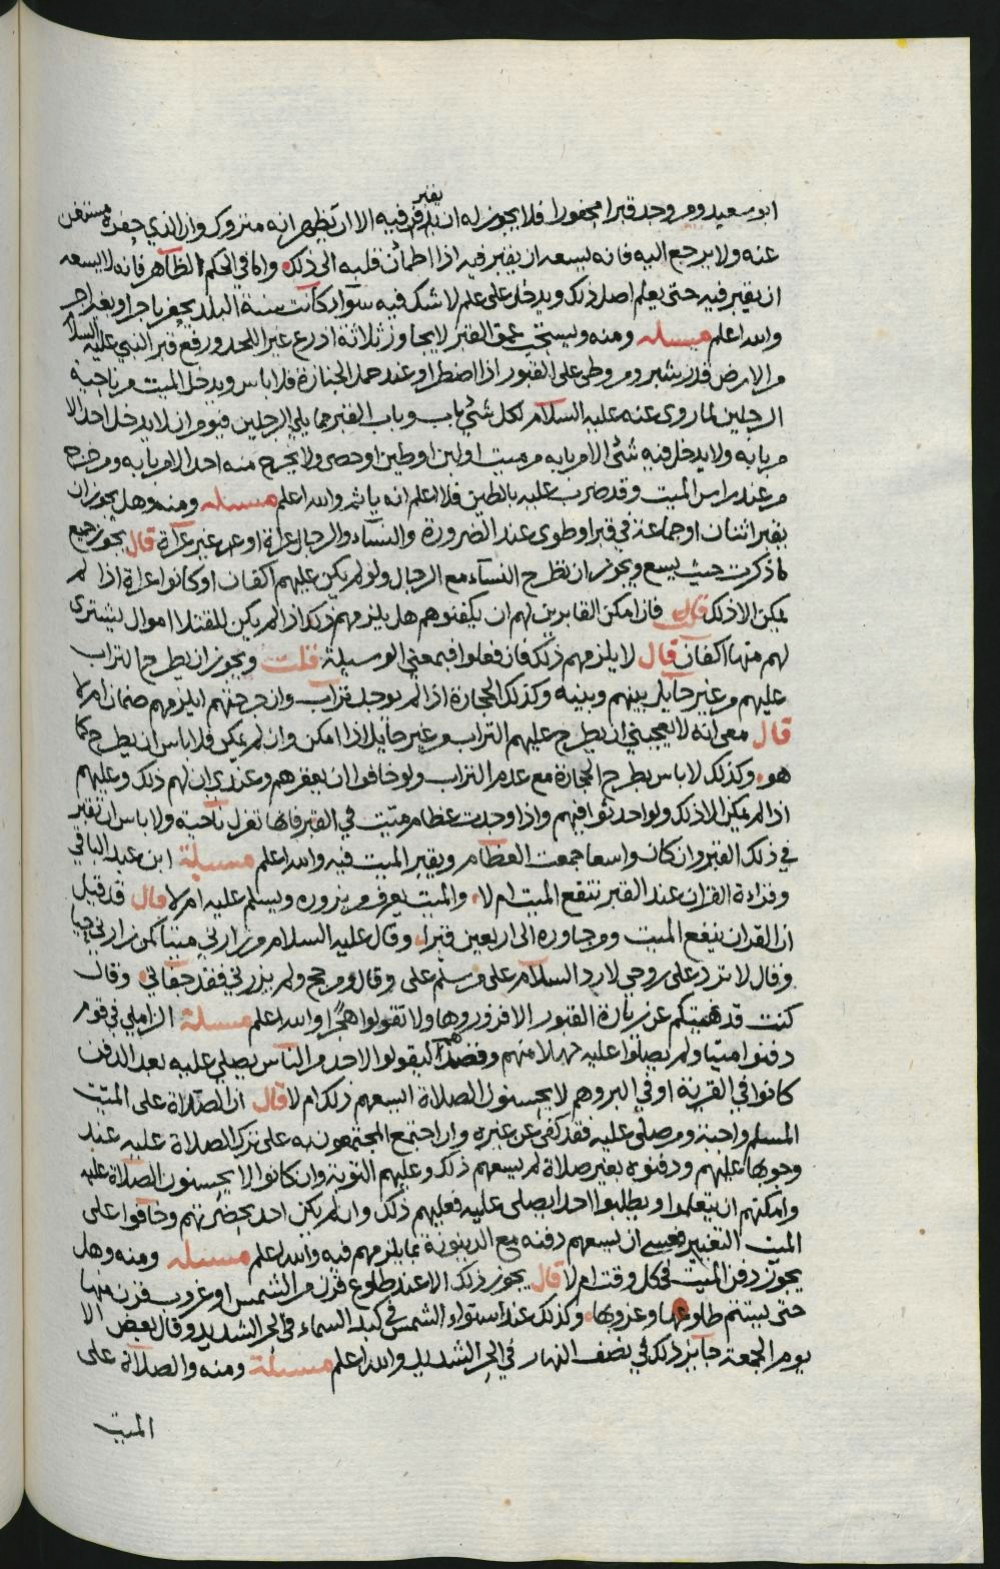 ابو سعيد ومن وجد قبرا محفورا فلا يجوز له ان يقبر فيه الا ان يظهر انه متروك وان الذي حفره مستغن
عنه ولا يرجع اليه فانه يسعه ان يقبر فيه اذا اطمأن قلبه الى ذلك واما في الحكم الظاهر فانه لا يسعه
ان يقبر فيه حتى يعلم اصل ذلك ويدخل على علم لا شك فيه سوآء كانت سنة البلد بحفر باجر او بغير اجر
والله اعلم مسئله ومنه ويستحب عمق القبر لا يجاوز ثلاثة اذرع غير اللحد ورفع قبر النبي عليه السلام
من الارض قدر شبر ومن وطى على القبور اذا اضطر او عند حمل الجنازة فلا باس ويدخل الميت من ناحية
الرجلين لما روى عنه عليه السلام لكل شئ باب وباب القبر مما يلي الرجلين فيومر ان لا يدخل احد الا
من بابه ولا يدخل فيه شئ الا من بابه من ميت او لبن او طين او حصى ولا يخرج منه احد الا من بابه ومن خرج
من عند راس الميت وقد ضرب عليه بالطين فلا اعلم انه ياثم والله اعلم مسئله ومنه وهل يجوز ان
يقبر اثنان او جماعة في قبر او طوى عند الضرورة والنسآء والرجال عراة او غير عراة قال يجوز جميع
ما ذكرت حيث يسع ويجوز ان تطرح النسآء مع الرجال ولو لم يكن عليهم اكفان او كانوا عراة اذا لم
يمكن الا ذلك قلت فان امكن القابرين لهم ان يكفنوهم هل يلزمهم ذلك اذا لم يكن للقتلا اموال يشترى
لهم منها اكفان قال لا يلزمهم ذلك فان فعلوا فبمعنى الوسيلة قلت ويجوز ان يطرح التراب
عليهم من غير حايل بينهم وبينه وكذلك الحجارة اذا لم يوجد تراب وان جرحتهم ايلزمهم ضمان ام لا
قال معى انه لا يعجبني ان يطرح عليهم التراب من غير حايل اذا امكن وان لم يمكن فلا باس ان يطرح كما
هو وكذلك لا باس بطرح الحجارة مع عدم التراب ولو خافوا ان يعقرهم وعندي ان لهم ذلك وعليهم
اذا لم يمكن الا ذلك ولو احدثوا فيهم واذا وجدت عظام ميت في القبر فانها تعزل ناحية ولا باس ان تقبر
في ذلك القبر وان كان واسعا جمعت العظام ويقبر الميت فيه والله اعلم مسئلة ابن عبد الباقي
وقراءة القران عند القبر تنفع الميت ام لا والميت يعرف من يزوره ويسلم عليه ام لا قال قد قيل
ان القران ينفع الميت ومن جاوره الى اربعين قبرا وقال عليه السلام من زارني ميتا كمن زارني حيا
وقال لا ترد على روحي لارد السلام على من سلم على وقال من حج ولم يزرني فقد جفاني وقال
كنت قد نهيتكم عن زيارة القبور الا فزوروها ولا تقولوا هجرا والله اعلم مسئلة الزاملي في قوم
دفنوا ميتا ولم يصلوا عليه جهلا منهم وقصدهم ليقولوا لاحد من الناس يصلي عليه بعد الدفن
كانوا في القرية او في البر وهم لا يحسنون الصلاة ايسعهم ذلك ام لا قال ان الصلاة على الميت
المسلم واجبة ومن صلى عليه فقد كفى عن غيره وان اجتمع المجتمعون له على ترك الصلاة عليه عند
وجوبها عليهم ودفنوه بغير صلاة لم يسعهم ذلك وعليهم التوبة وان كانوا لا يحسنون الصلاة عليه
وامكنهم ان يتعلموا او يطلبوا احدا يصلى عليه فعليهم ذلك وان لم يكن احد بحضرتهم وخافوا على
الميت التغيير فعسى ان يسعهم دفنه مع الدينونة بما يلزمهم فيه والله اعلم مسئله ومنه وهل
يجوز دفن الميت في كل وقت ام لا قال يجوز ذلك الا عند طلوع قرن من الشمس او غروب قرن منها
حتى يستتم طلوعها وغروبها وكذلك عند استواء الشمس في كبد السماء في الحر الشديد وقال بعض الا
يوم الجمعة جايز ذلك في نصف النهار في الحر الشديد والله اعلم مسئلة ومنه والصلاة على
الميت